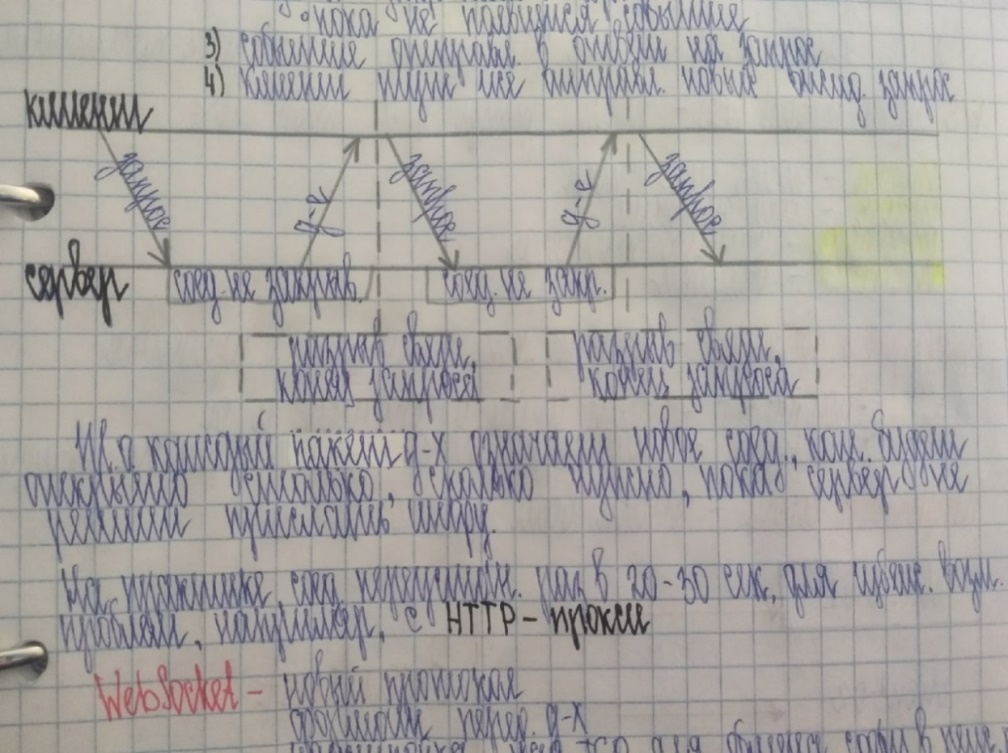 пока не появится событие
3) событие отправл. в ответ на запрос
4) клиент тут же отправл. новый ожид. запрос
клиент
запрос
д-х
запрос
д-х
запрос
сервер
соед. не закрыв.
соед. не закр.
разрыв связи,
конец запроса
разрыв связи,
конец запроса
Т.о каждый пакет д-х означает новое соед., кот. будет
открыто столько, сколько нужно, пока сервер не
решит прислать инфу.
На практике, соед переустан. раз в 20-30 сек, для избеж. возм.
проблем, например, с HTTP-прокси
WebSocket - новый протокол